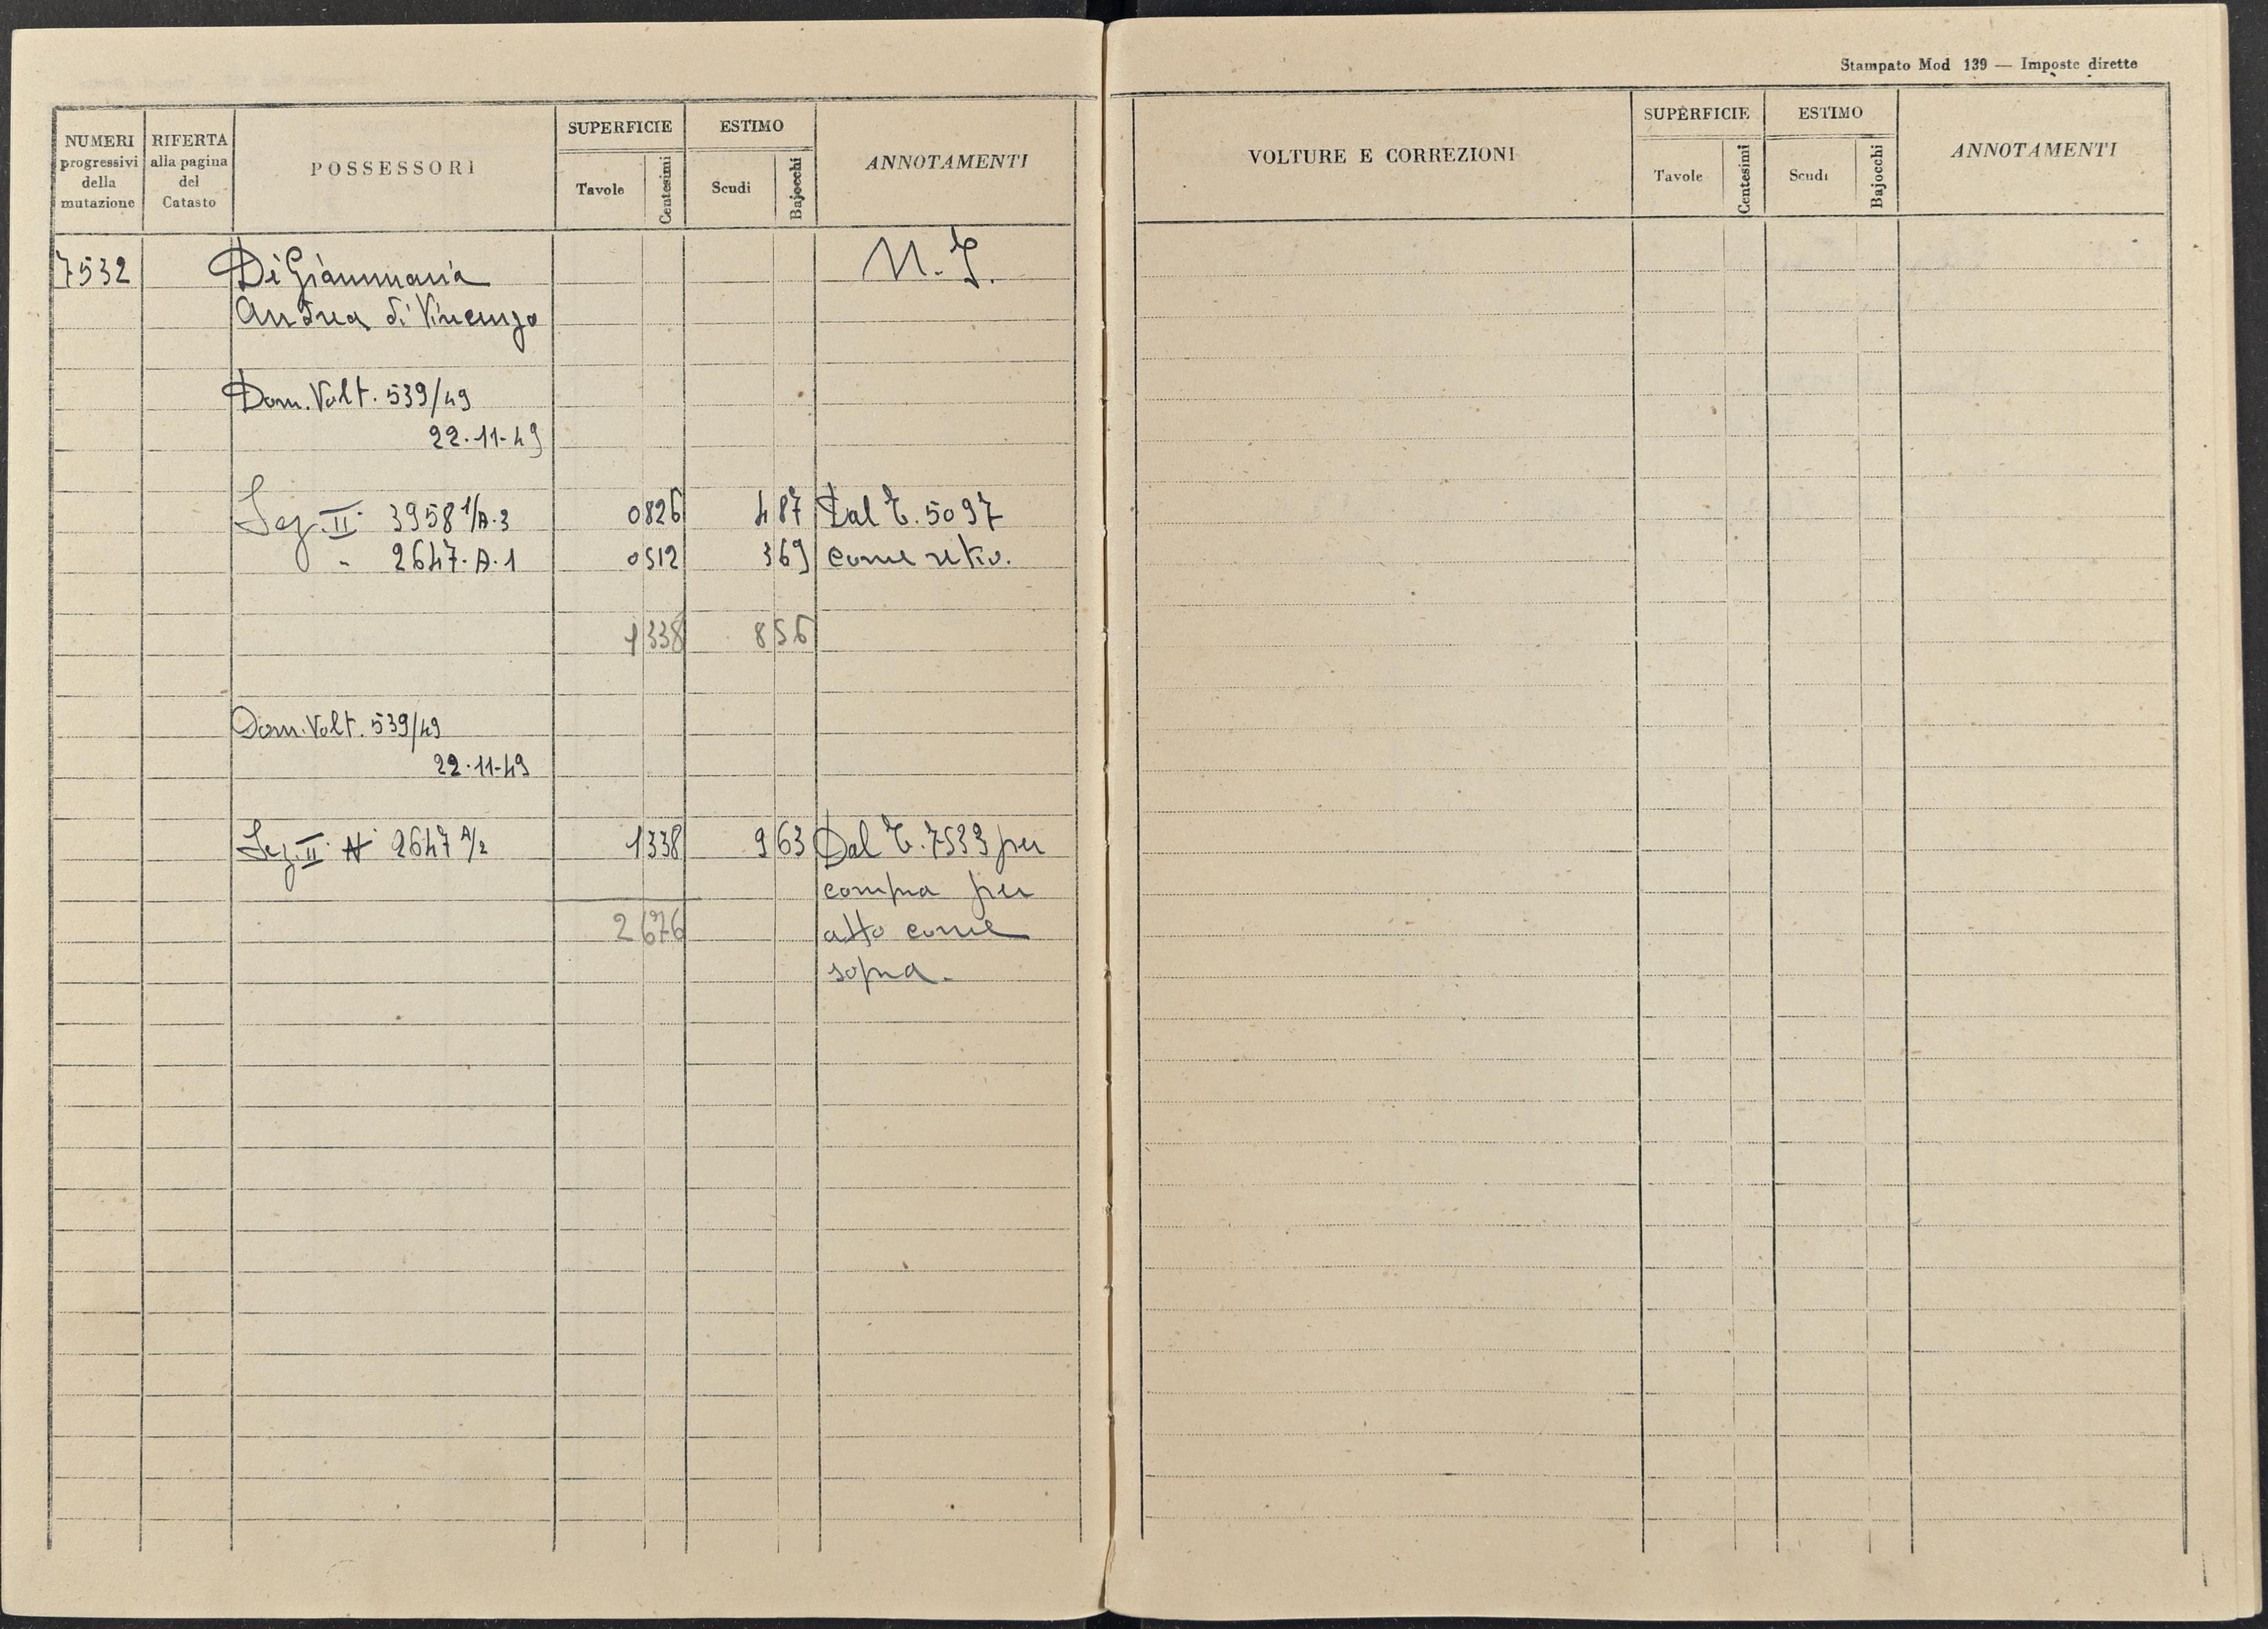 Stampato Mod 139 — Imposte dirette
NUMERI progressivi della mutazione
RIFERTA alla pagina del Catasto
POSSESSORI
SUPERFICIE
Tavole
Centesimi
ESTIMO
Scudi
Bajocchi
ANNOTAMENTI
7532 Di Giammaria M. I.
Andrea di Vincenzo
Dom. Volt. 539/49
22-11-49
Sez. II 3958 1/A-3 0 826 4 87 Dal T. 5097
" 2647-A-1 0 512 3 69 come retro.
1 338 8 56
Dom. Volt. 539/49
22-11-49
Sez. II N 2647 A/2 1 338 9 63 Dal T. 7533 per
compra per
2 676 atto come
sopra.
VOLTURE E CORREZIONI
SUPERFICIE
Tavole
Centesimi
ESTIMO
Scudi
Bajocchi
ANNOTAMENTI